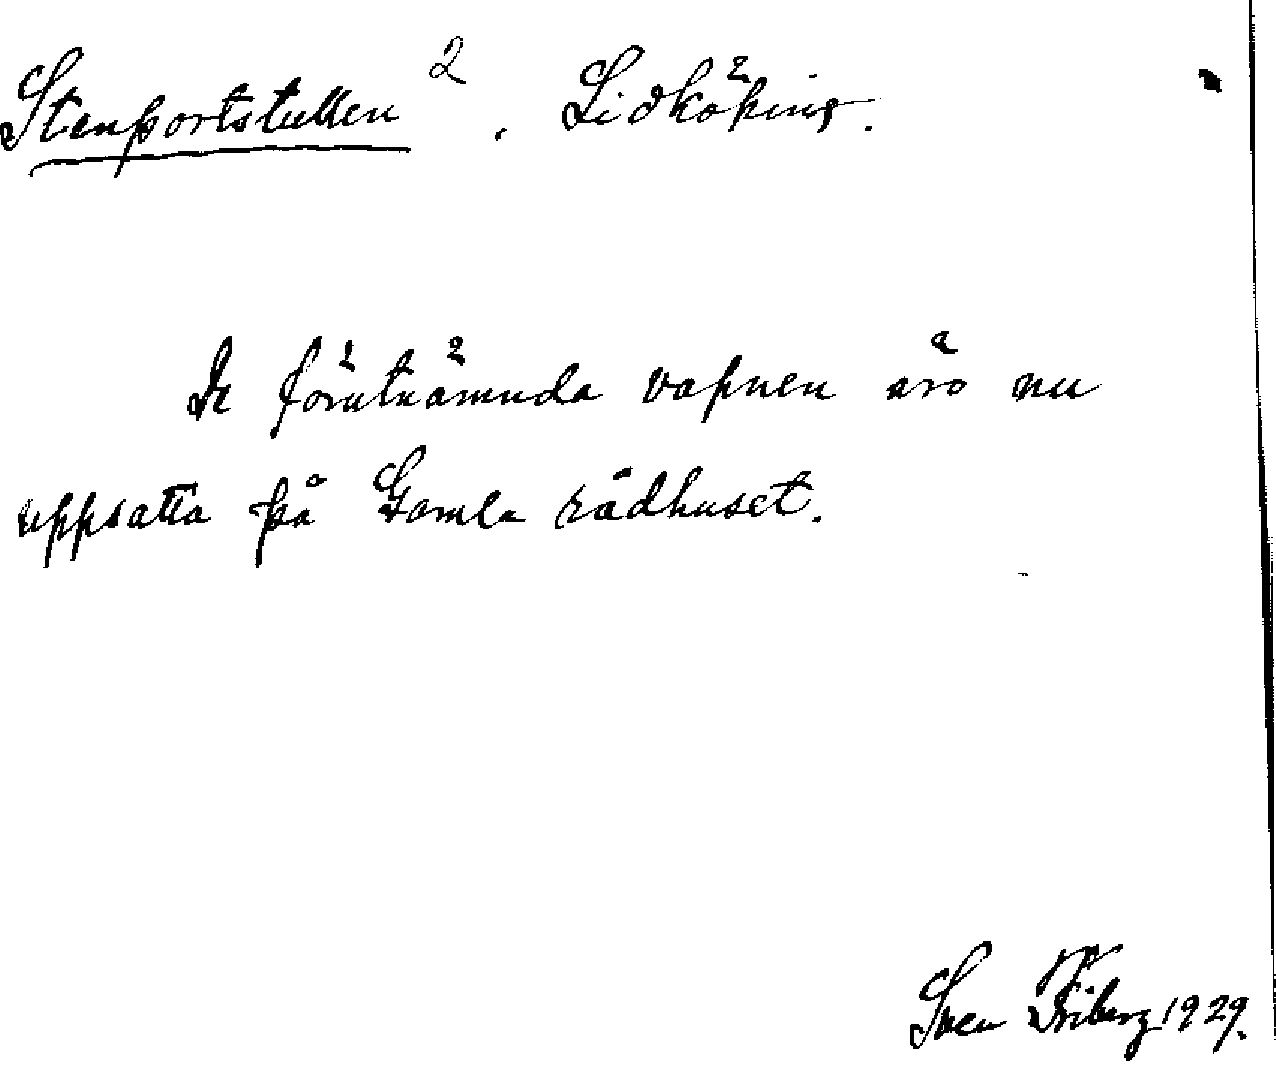 Stenportstullen 2. Lidköping.
De förutnämnda vapnen äro nu
uppsatta på Gamla rådhuset.
Sven Friberg 1929.